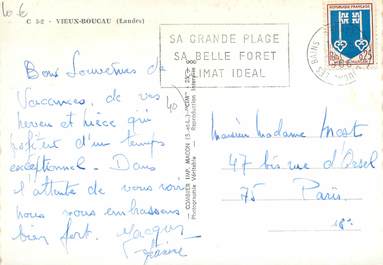 10 €
C 52 - VIEUX-BOUCAU (Landes)
SA GRANDE PLAGE
SA BELLE FORET
CLIMAT IDEAL
REPUBLIQUE FRANÇAISE
0,25
LES BAINS
Bons Souvenirs de
Vacances, de vos
neveu et nièce qui
profitent d'un temps
exceptionnel. Dans
l'attente de vous voir
nous vous embrassons
bien fort. Jacques
40
COMBIER IMP. MACON
Photographie Véritable - Reproduction Interdite
Monsieur Madame Most
47 bis rue d'Orsel
75 Paris.
18e